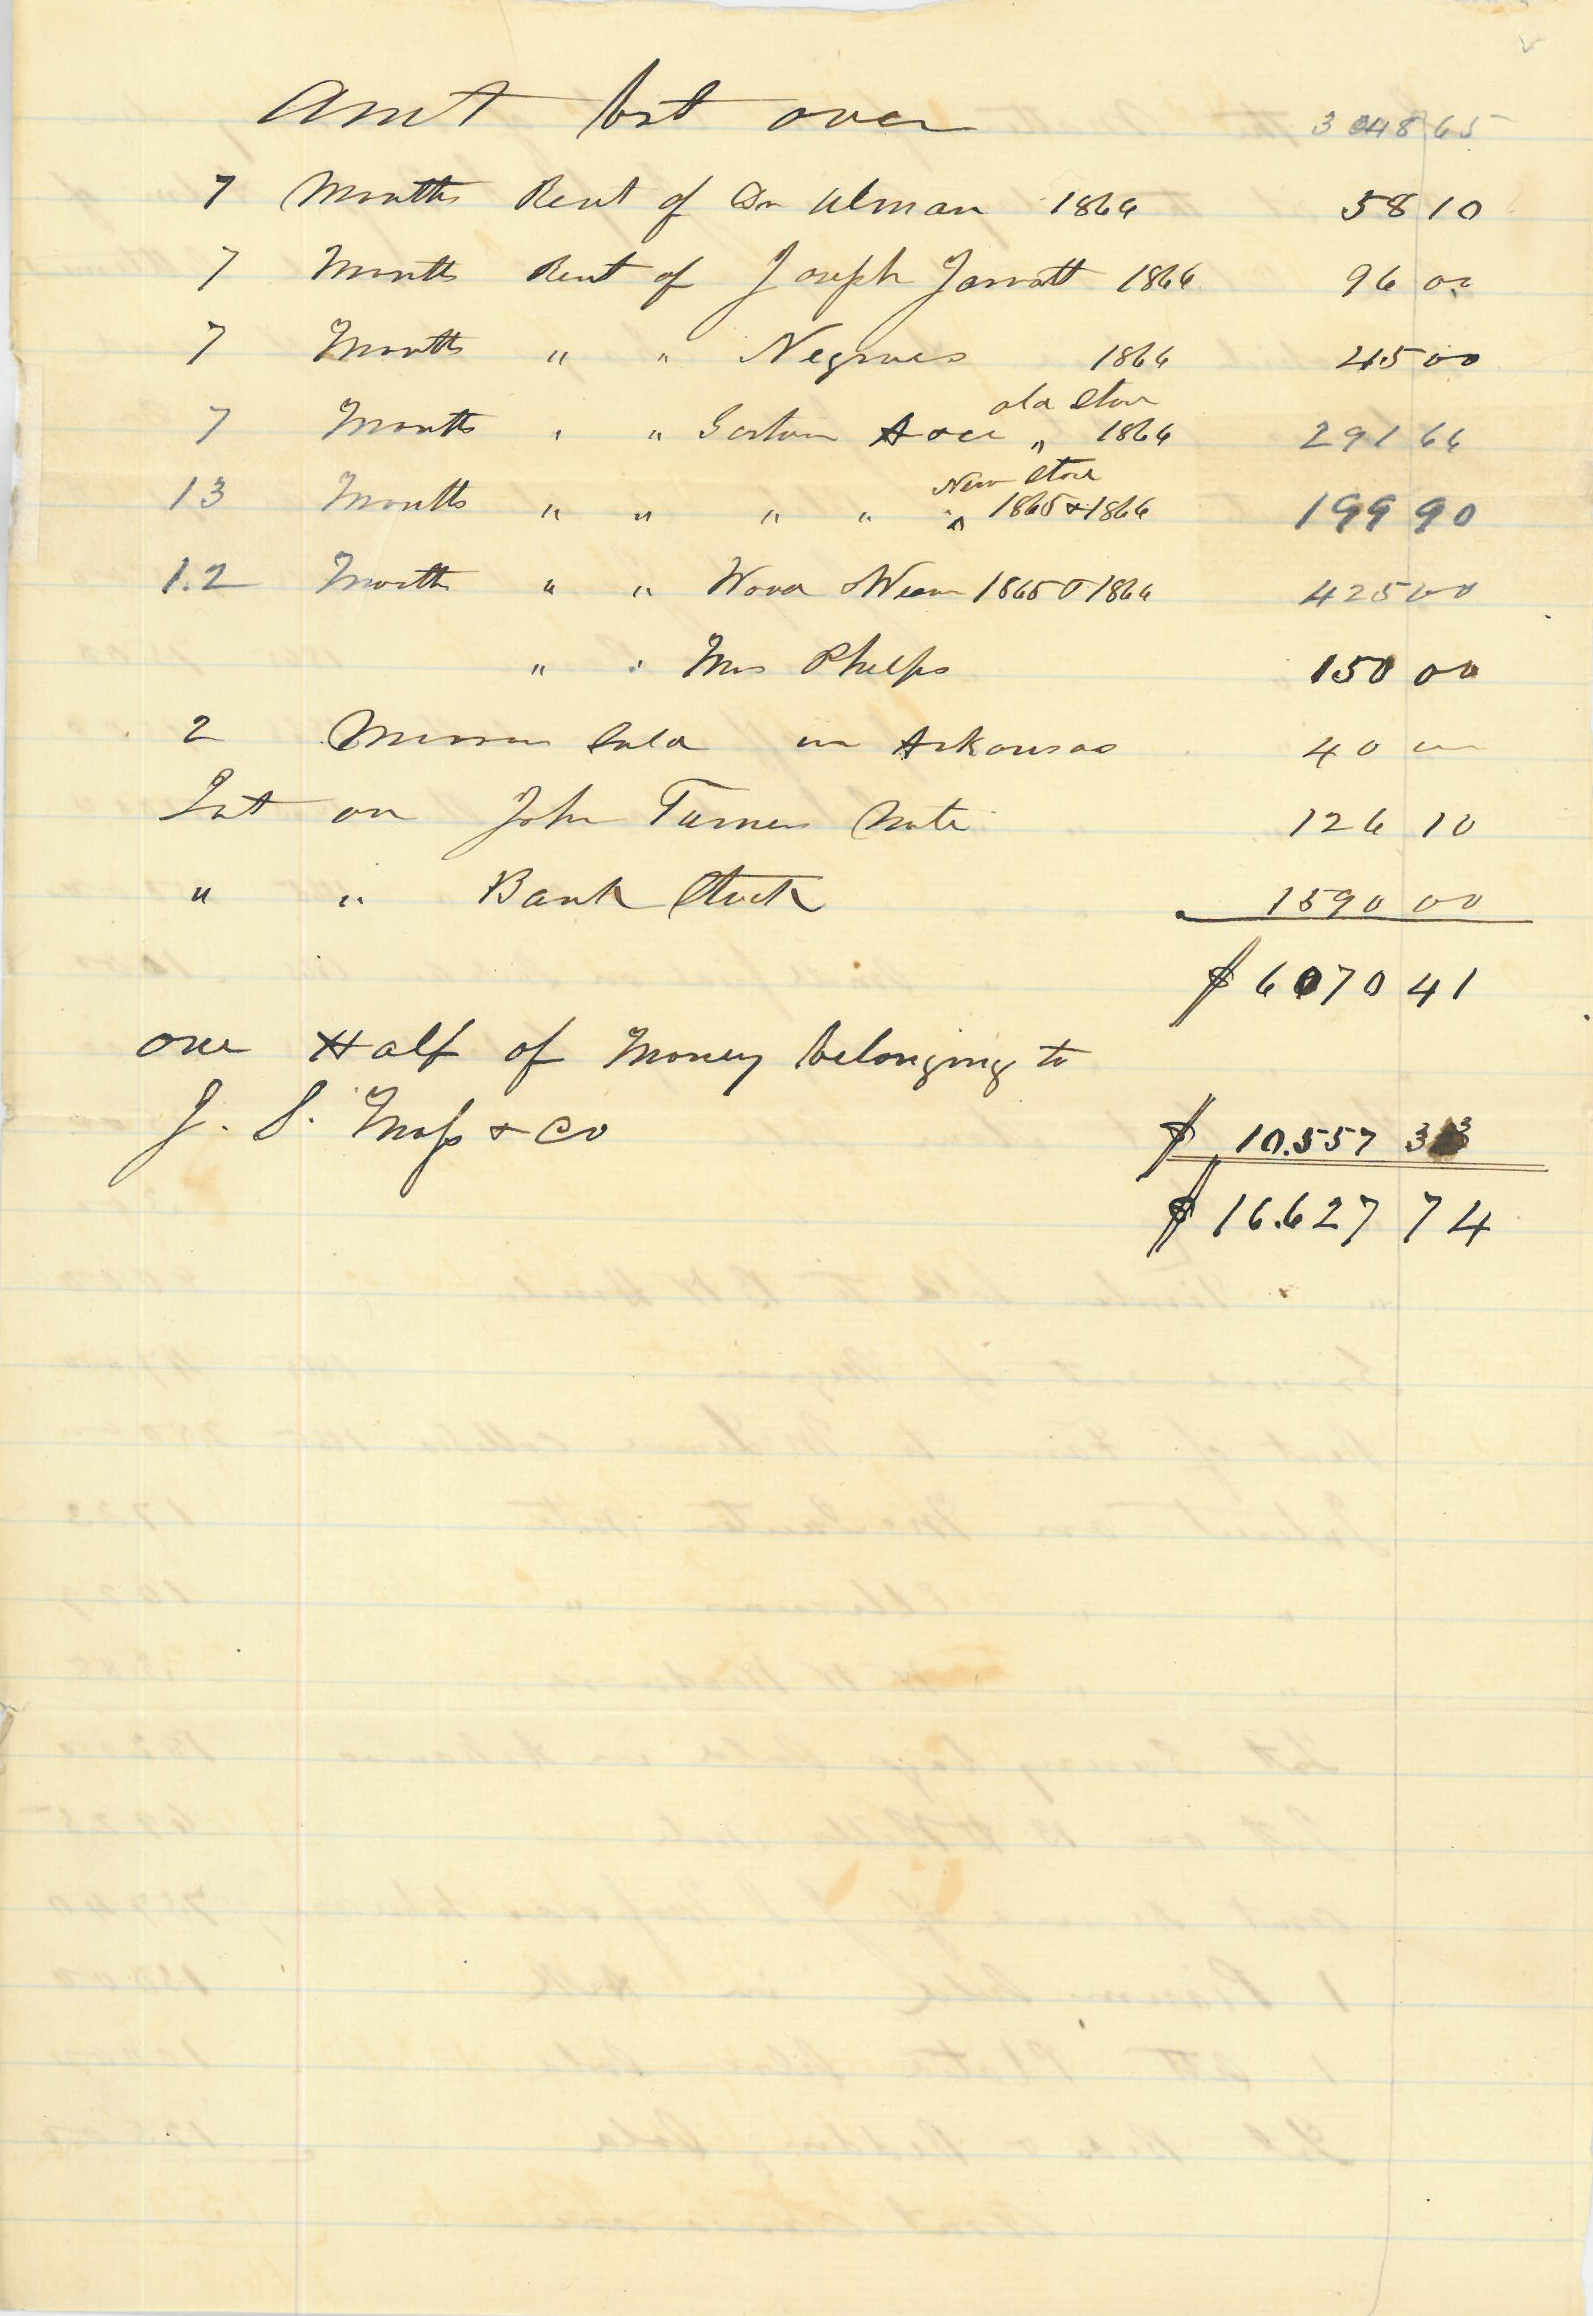 Amt bot over 3048 65
7 Months Rent of Dr Ulman 1866 58 10
7 Months Rent of Joseph Jarratt 1866 96 00
7 Months " " Negroes 1866 45 00
old Store
7 Months " " Acce " 1866 291 66
New Store
13 Months " " " " " 1865 & 1866 199 90
12 Months " " Wood 1865 & 1866 425 00
" " Mrs Phelps 150 00
2 sold in Arkansas 40 00
Int on John Turners Note 126 10
" " Bank Stock 1590 00
$ 6070 41
one Half of Money belonging to
J. S. Moss & Co $ 10.557 33
$ 16.627 74